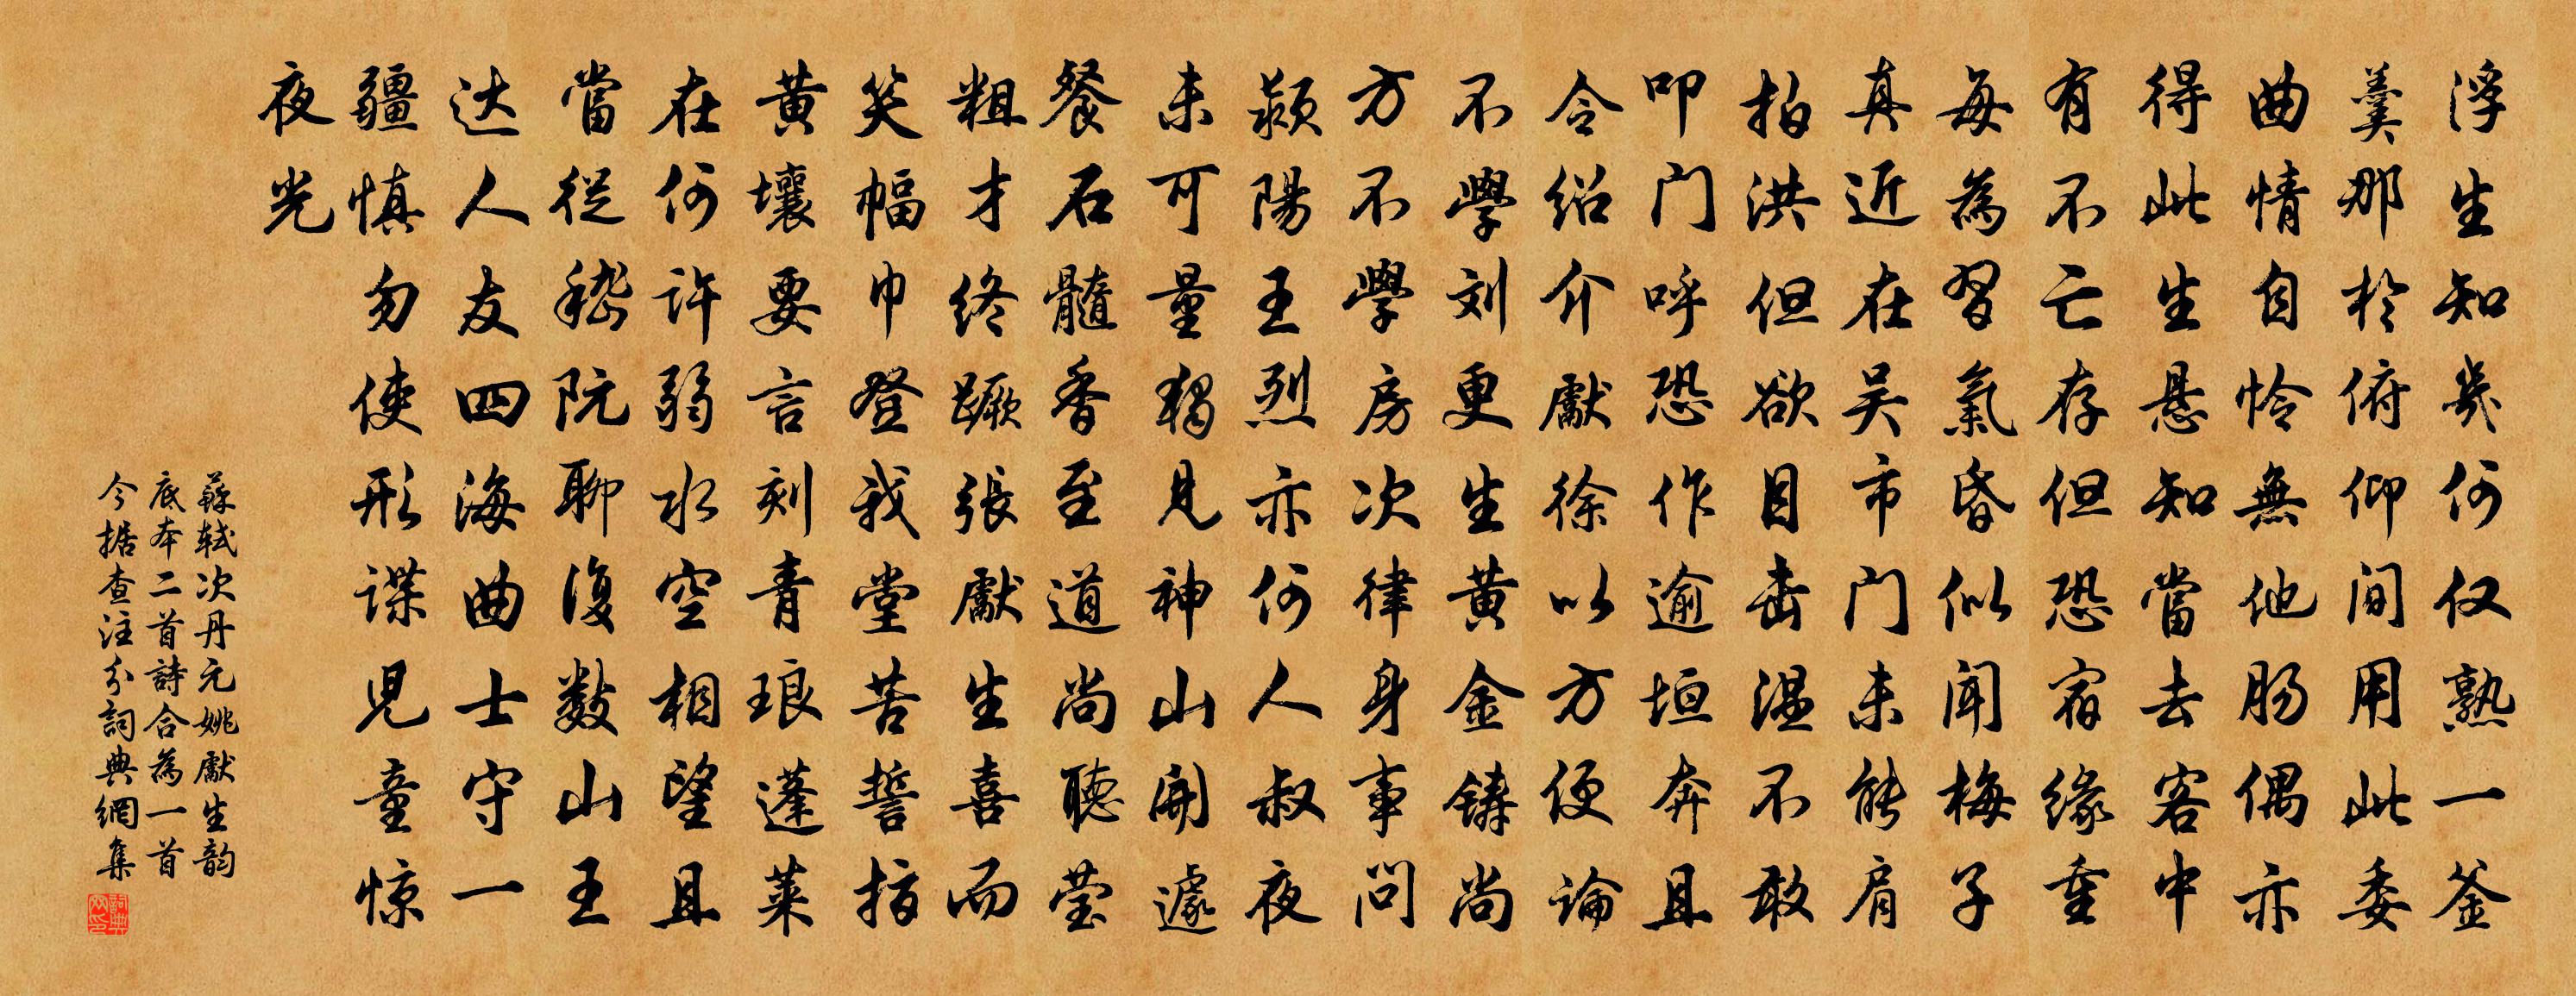 浮生知幾何仅熟一釜
羹那於俯仰间用此委
曲情自怜無他肠偶亦
得此生悬知當去客中
有不亡存但恐宿缘重
每為習氣昏似闻梅子
真近在吴市门未能肩
拍洪但欲目击温不敢
叩门呼恐作逾垣奔且
令绍介獻徐以方便论
不學刘更生黄金铸尚
方不學房次律身事问
颍陽王烈亦何人叔夜
未可量獨见神山開遽
餐石髓香至道尚聽莹
粗才终蹶張獻生喜而
笑幅巾登我堂苦誓指
黄壤要言刻青琅蓬莱
在何许弱水空相望且
當從嵇阮聊復数山王
达人友四海曲士守一
疆慎勿使形谍児童惊
夜光
蘇轼次丹元姚獻生韵
底本二首詩合為一首
今据查注分詞典網集